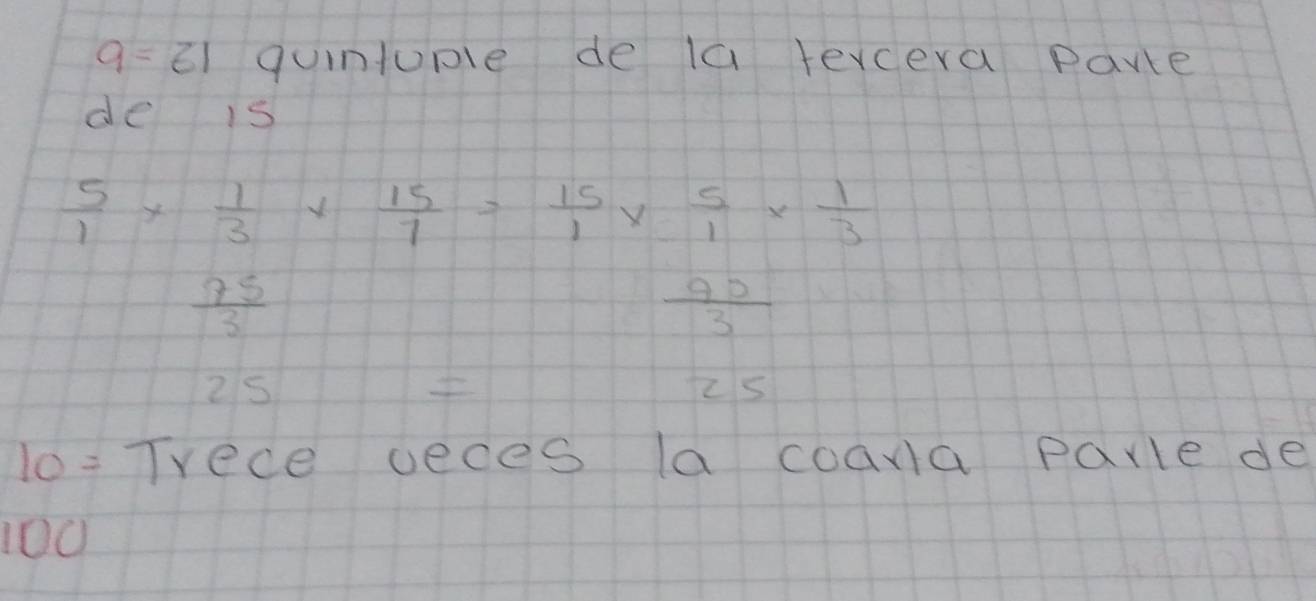 9= El quintuple de la tercera parte
de 15
5/1 × 1/3 × 15/1 = 15/1 × 5/1 × 1/3
75/3 90/3
25 = 25
10= Trece veces la coarta parte de
100